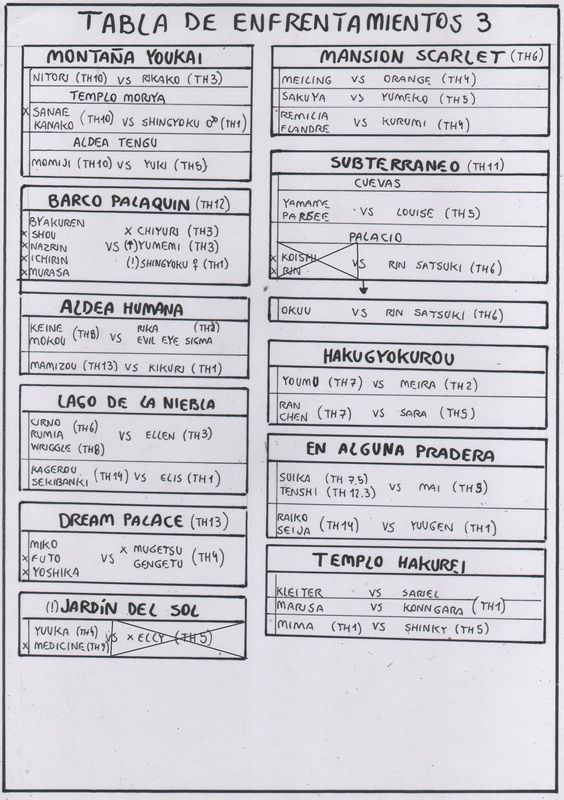 TABLA DE ENFRENTAMIENTOS 3
MONTAÑA YOUKAI
NITORI (TH10) VS RIKAKO (TH3)
TEMPLO MORIYA
X SANAE
KANAKO (TH10) VS SHINGYOKU ♂ (TH1)
ALDEA TENGU
MOMIJI (TH10) VS YUKI (TH5)
BARCO PALAQUIN (TH12)
BYAKUREN X CHIYURI (TH3)
X SHOU
X NAZRIN VS (†) YUMEMI (TH3)
X ICHIRIN (!) SHINGYOKU ♀ (TH1)
X MURASA
ALDEA HUMANA
KEINE RIKA (TH2)
MOKOU (TH8) VS EVIL EYE SIGMA
MAMIZOU (TH13) VS KIKURI (TH1)
LAGO DE LA NIEBLA
CIRNO (TH6)
RUMIA VS ELLEN (TH3)
WRIGGLE (TH8)
KAGEROU
SEKIBANKI (TH14) VS ELIS (TH1)
DREAM PALACE (TH13)
MIKO
X FUTO VS X MUGETSU
X YOSHIKA GENGETU (TH4)
(!) JARDÍN DEL SOL
YUUKA (TH4)
X MEDICINE (TH9) VS X ELLY (TH5)
MANSION SCARLET (TH6)
MEILING VS ORANGE (TH4)
SAKUYA VS YUMEKO (TH5)
REMILIA
FLANDRE VS KURUMI (TH4)
SUBTERRANEO (TH11)
CUEVAS
YAMAME
PARSEE VS LOUISE (TH5)
PALACIO
X KOISHI
X RIN VS RIN SATSUKI (TH6)
OKUU VS RIN SATSUKI (TH6)
HAKUGYOKUROU
YOUMU (TH7) VS MEIRA (TH2)
RAN
CHEN (TH7) VS SARA (TH5)
EN ALGUNA PRADERA
SUIKA (TH 7,5)
TENSHI (TH 12.3) VS MAI (TH5)
RAIKO
SEIJA (TH14) VS YUUGEN (TH1)
TEMPLO HAKUREI
KLEITER VS SARIEL
MARISA VS KONNGARA (TH1)
MIMA (TH1) VS SHINKY (TH5)